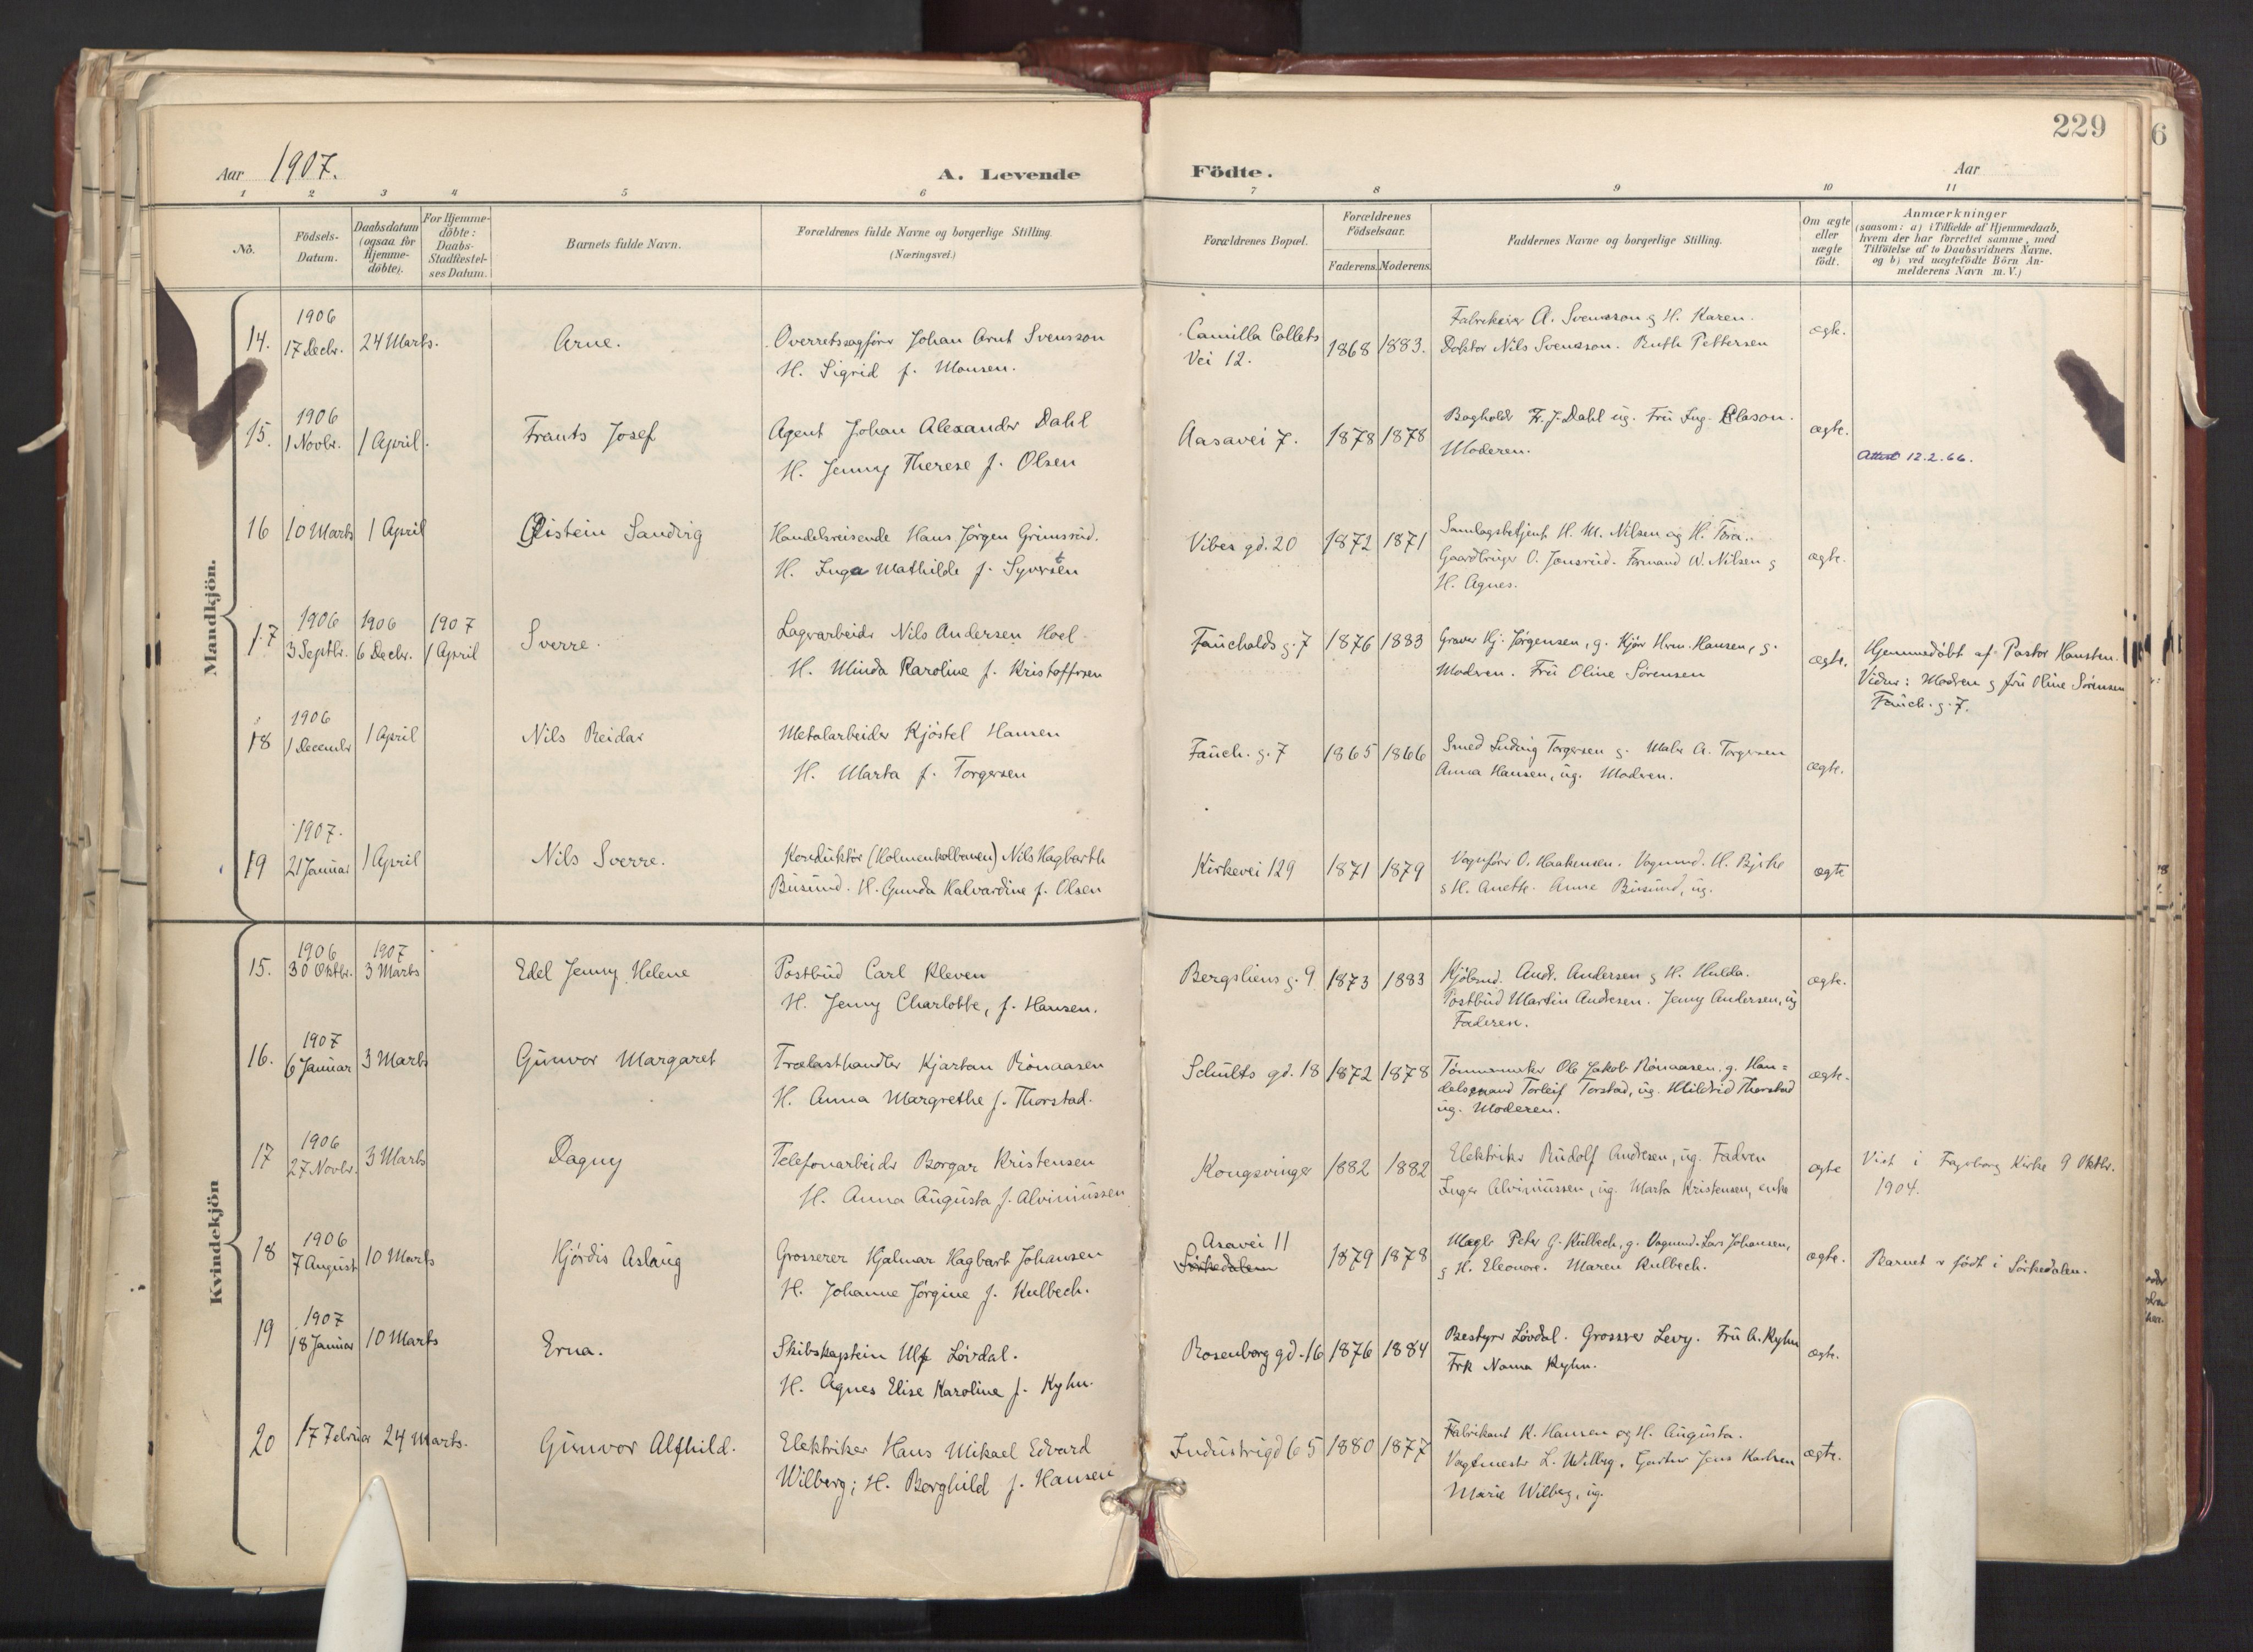 229
6
Aar 1907. A. Levende Födte. Aar
1 2 3 4 5 6 7 8 9 10 11
Nö.
Födsels-Datum.
Daabsdatum (ogsaa for Hjemme-döbte).
For Hjemme-döbte: Daabs-Stadfæstel-ses Datum.
Barnets fulde Navn.
Forældrenes fulde Navne og borgerlige Stilling.
(Næringsvei.)
Forældrenes Bopæl.
Forældrenes Födselsaar.
Faderens. Moderens.
Faddernes Navne og borgerlige Stilling.
Om ægte eller uægte födt.
Anmærkninger
(saasom: a) i Tilfælde af Hjemmedaab,
hvem der har forrettet samme, med
Tilföielse af to Daabsvidners Navne.
og b) ved uægtefödte Börn An-
melderens Navn m. V.)
Mandkjön.
14. 1906 17 Decbr. 24 Marts. Arne. Overretssagförer Johan Arnt Svensson
H. Sigrid f. Monsen.
Camilla Collets Vei 12. 1868 1883.
Fabrikeier A. Svensson g H. Karen.
Doktor Nils Svensson. Ruth Pettersen
ægte.
15. 1906 1 Novbr. 1 April. Frants Josef Agent Johan Alexander Dahl
H. Jenny Therese f. Olsen
Aasavei 7. 1878 1878
Bogholdr Fr. J. Dahl ug. Fru Ing. Clason.
Moderen.
ægte.
Attest 12.2.66.
16 10 Marts 1 April Øistein Sandvig Handelsreisende Hans Jörgen Grimsrud.
H. Inga Mathilde f. Syversten
Vibes gd. 20 1872 1871
Samlagsbetjent H. M. Nilsen og H. Tora.
Gaardbruger O. Jonsrud. Formand W. Nilsen g
H. Agnes.
ægte.
17 1906 3 Septbr. 1906 6 Decbr. 1907 1 April Sverre. Lagerarbeidr Nils Andersen Hoel
H. Minda Karoline f. Kristoffersen
Fauchalds g. 7 1876 1883
Graver Hj. Jörgensen, g. Kjör Hrm. Hansen, g.
Modren. Fru Oline Sörensen
ægte.
Hjemmedöbt af Pastor Hansten.
Vidner: Modren g fru Oline Sörensen
Fauch. g. 7.
18 1906 1 Decembr 1 April Nils Reidar Metalarbeider Kjöstel Hansen
H. Marta f. Torgersen
Fauch. g. 7 1865 1866
Smed Ludvig Torgersen g. Maler A. Torgersen
Anna Hansen, ug. Modren.
ægte.
19 1907. 21 Januar 1 April Nils Sverre. Konduktör (Holmenkolbanen) Nils Hagbarth
Busund. H. Gunda Halvardine f. Olsen
Kirkevei 129 1871 1879
Vognförer O. Haakensen. Vognmd. H. Bjerke
g H. Anette. Anne Busund, ug.
ægte
Kvindekjön
15. 1906 30 Oktbr. 1907 3 Marts Edel Jenny Helene Postbud Carl Kleven
H. Jenny Charlotte, f. Hansen.
Bergsliens g. 9 1873 1883
Kjöbmd. Andr. Andersen g H. Hulda.
Postbud Martin Andresen. Jenny Andersen, ug
Faderen.
ægte.
16. 1907 6 Januar 3 Marts Gunvor Margaret Trælasthandler Kjartan Rönaasen
H. Anna Margrethe f. Thorstad.
Schults gd. 18 1872 1878
Tömmermester Ole Jakob Rönaasen. g. Han=
delsmand Torleif Torstad, ug. Mildrid Thorstad
ug. Moderen.
ægte.
17 1906 27 Novbr. 3 Marts Dagny Telefonarbeidr Borgar Kristensen
H. Anna Augusta f. Alviniussen
Kongsvinger 1882 1882
Elektriker Rudolf Andresen, ug. Fadren
Inger Alviniussen, ug. Marta Kristensen, enke
ægte
Viet i Fagerborg Kirke 9 Oktbr.
1904.
18 1906 7 August 10 Marts Hjördis Aslaug Grosserer Hjalmar Hagbart Johansen
H. Johanne Jörgine f. Kulbech.
Asavei 11
Sörkedalen
1879 1878
Mægler Peter G. Kulbech, g. Vognmd. Lars Johansen,
g H. Eleonore. Maren Kulbech.
ægte.
Barnet er født i Sörkedalen.
19 1907 18 Januar 10 Marts Erna. Skibskaptein Ulf Lövdal.
H. Agnes Elise Karoline f. Kyhn.
Rosenborg gd. 16 1876 1884
Bestyrer Lövdal. Grosserer Levy. Fru A. Kyhn
Frk Nanna Kyhn.
ægte.
20 17 Februar 24 Marts. Gunvor Alfhild. Elektriker Hans Mikael Edvard
Wilberg; H. Borghild f. Hansen
Industrigd 65 1880 1877
Fabrikant K. Hansen og H. Augusta.
Vagtmester L. Wilberg. Gartner Jens Karlsen
Marie Wilberg, ug.
ægte.